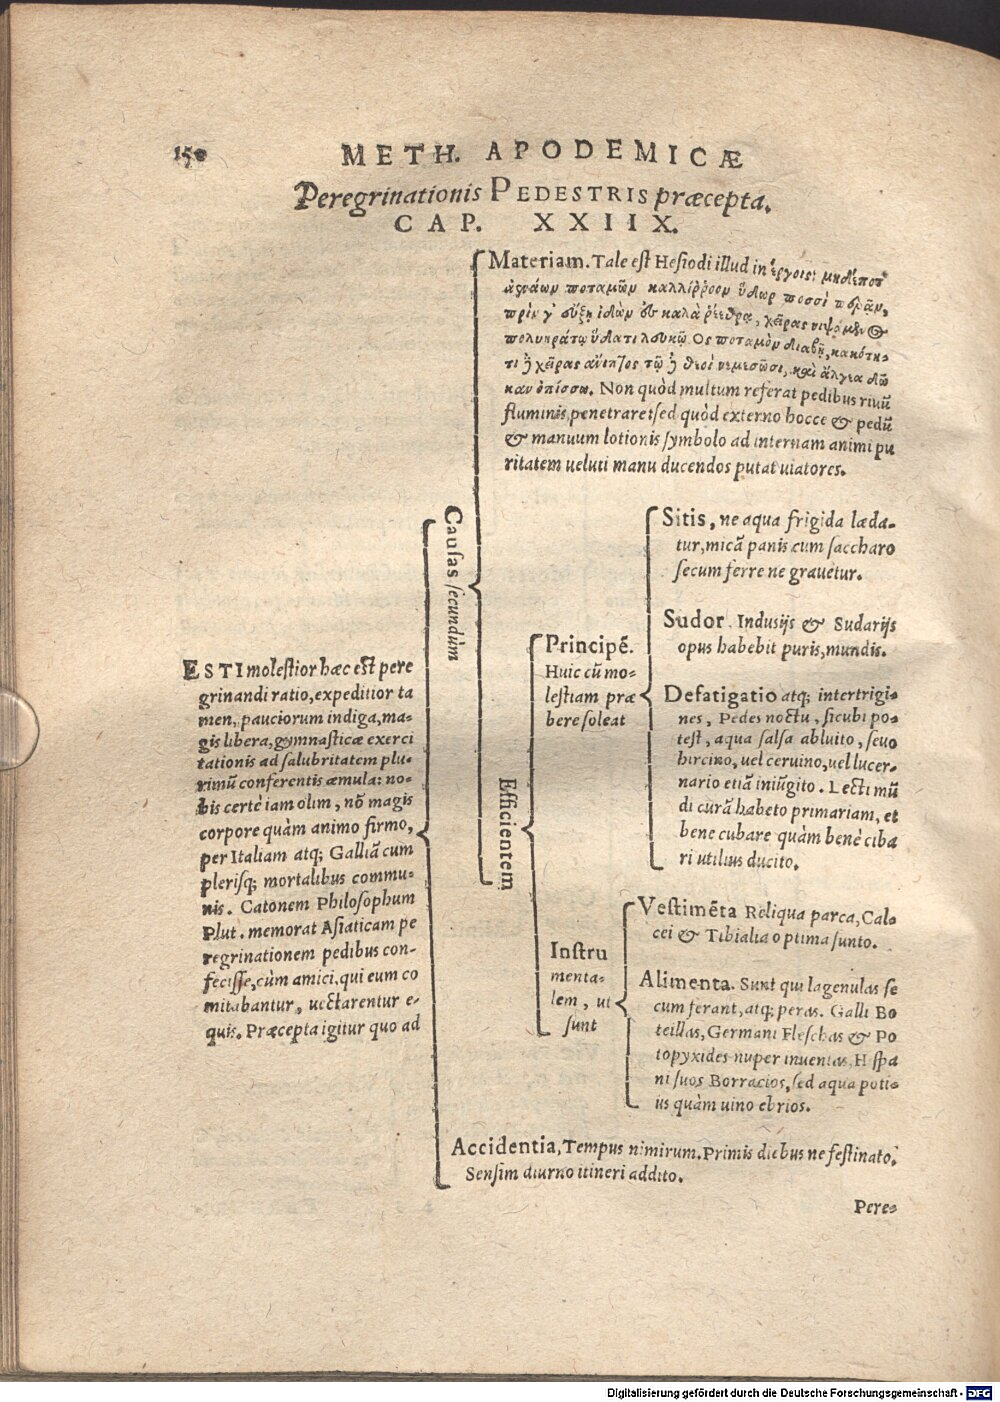 150
METH. APODEMICÆ
Peregrinationis PEDESTRIS præcepta.
CAP. XXIIX.
ESTI molestior hæc est pere
grinandi ratio, expeditior ta
men, pauciorum indiga, ma-
gis libera, gymnasticæ exerci
tationis ad salubritatem plu-
rimũ conferentis æmula: no-
bis certè iam olim, nõ magis
corpore quàm animo firmo,
per Italiam atq; Galliã cum
plerisq; mortalibus commu-
nis. Catonem Philosophum
Plut. memorat Asiaticam pe
regrinationem pedibus con-
fecisse, cùm amici, qui eum co
mitabantur, uectarentur e-
quis. Præcepta igitur quo ad
Causas secundùm
Materiam. Tale est Hesiodi illud in ἔργοις: μηδέποτ
ἀενάων ποταμῶν καλλίῤῥοον ὕδωρ ποσσὶ περᾶν,
πρίν γ' εὔξῃ ἰδὼν ἐς καλὰ ῥέεθρα, χεῖρας νιψάμενος
πολυηράτῳ ὕδατι λευκῷ. Ος ποταμὸν διαβῇ, κακότη-
τι ἢ χεῖρας ἄνιπτος τῷ ἢ θεοὶ νεμεσῶσι, καὶ ἄλγεα δῶ
καν ὀπίσσω. Non quòd multum referat pedibus riuũ
fluminis penetrare: sed quòd externo hocce & pedũ
& manuum lotionis symbolo ad internam animi pu
ritatem ueluti manu ducendos putat uiatores.
Efficientem
Principẽ.
Huic cũ mo-
lestiam præ
bere soleat
Sitis, ne aqua frigida læda-
tur, micã panis cum saccharo
secum ferre ne grauetur.
Sudor. Indusijs & Sudarijs
opus habebit puris, mundis.
Defatigatio atq; intertrigi-
nes, Pedes noctu, sicubi po-
test, aqua salsa abluito, seuo
hircino, uel ceruino, uel lucer-
nario etiã iniũgito. Lecti mũ
di curã habeto primariam, et
bene cubare quàm benè ciba
ri utilius ducito.
Instru
menta-
lem, ut
sunt
Vestimẽta Reliqua parca, Cal-
cei & Tibialia optima sunto.
Alimenta. Sunt qui lagenulas se
cum ferant, atq; peras. Galli Bo
teillas, Germani Fleschas & Po
topyxides nuper inuentas, Hispa
ni suos Borracios, sed aqua poti-
us quàm uino ebrios.
Accidentia, Tempus nimirum. Primis diebus ne festinato,
Sensim diurno itineri addito.
Pere-
Digitalisierung gefördert durch die Deutsche Forschungsgemeinschaft - DFG